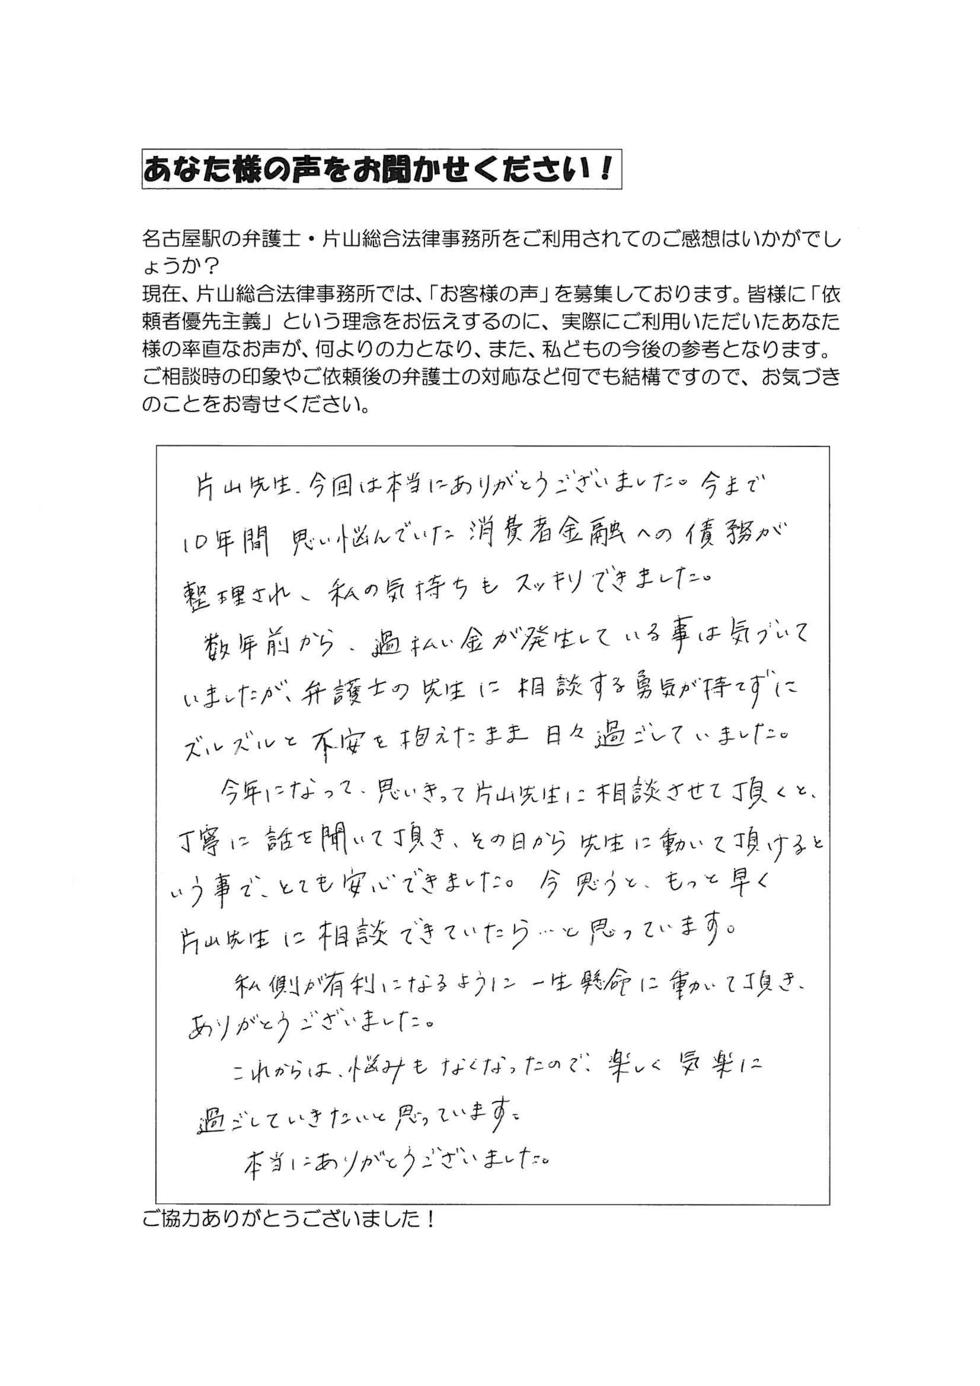 あなた様の声をお聞かせください！
名古屋駅の弁護士・片山総合法律事務所をご利用されてのご感想はいかがでし
ょうか？
現在、片山総合法律事務所では、「お客様の声」を募集しております。皆様に「依
頼者優先主義」という理念をお伝えするのに、実際にご利用いただいたあなた
様の率直なお声が、何よりの力となり、また、私どもの今後の参考となります。
ご相談時の印象やご依頼後の弁護士の対応など何でも結構ですので、お気づき
のことをお寄せください。
片山先生、今回は本当にありがとうございました。今まで
10年間 思い悩んでいた 消費者金融への債務が
整理され、私の気持ちもスッキリできました。
数年前から、過払い金が発生している事は気づいて
いましたが、弁護士の先生に相談する勇気が持てずに
ズルズルと不安を抱えたまま日々過ごしていました。
今年になって、思いきって片山先生に相談させて頂くと、
丁寧に話を聞いて頂き、その日から先生に動いて頂けると
いう事で、とても安心できました。今思うと、もっと早く
片山先生に相談できていたら…と思っています。
私側が有利になるように一生懸命に動いて頂き、
ありがとうございました。
これからは、悩みもなくなったので、楽しく気楽に
過ごしていきたいと思っています。
本当にありがとうございました。
ご協力ありがとうございました！